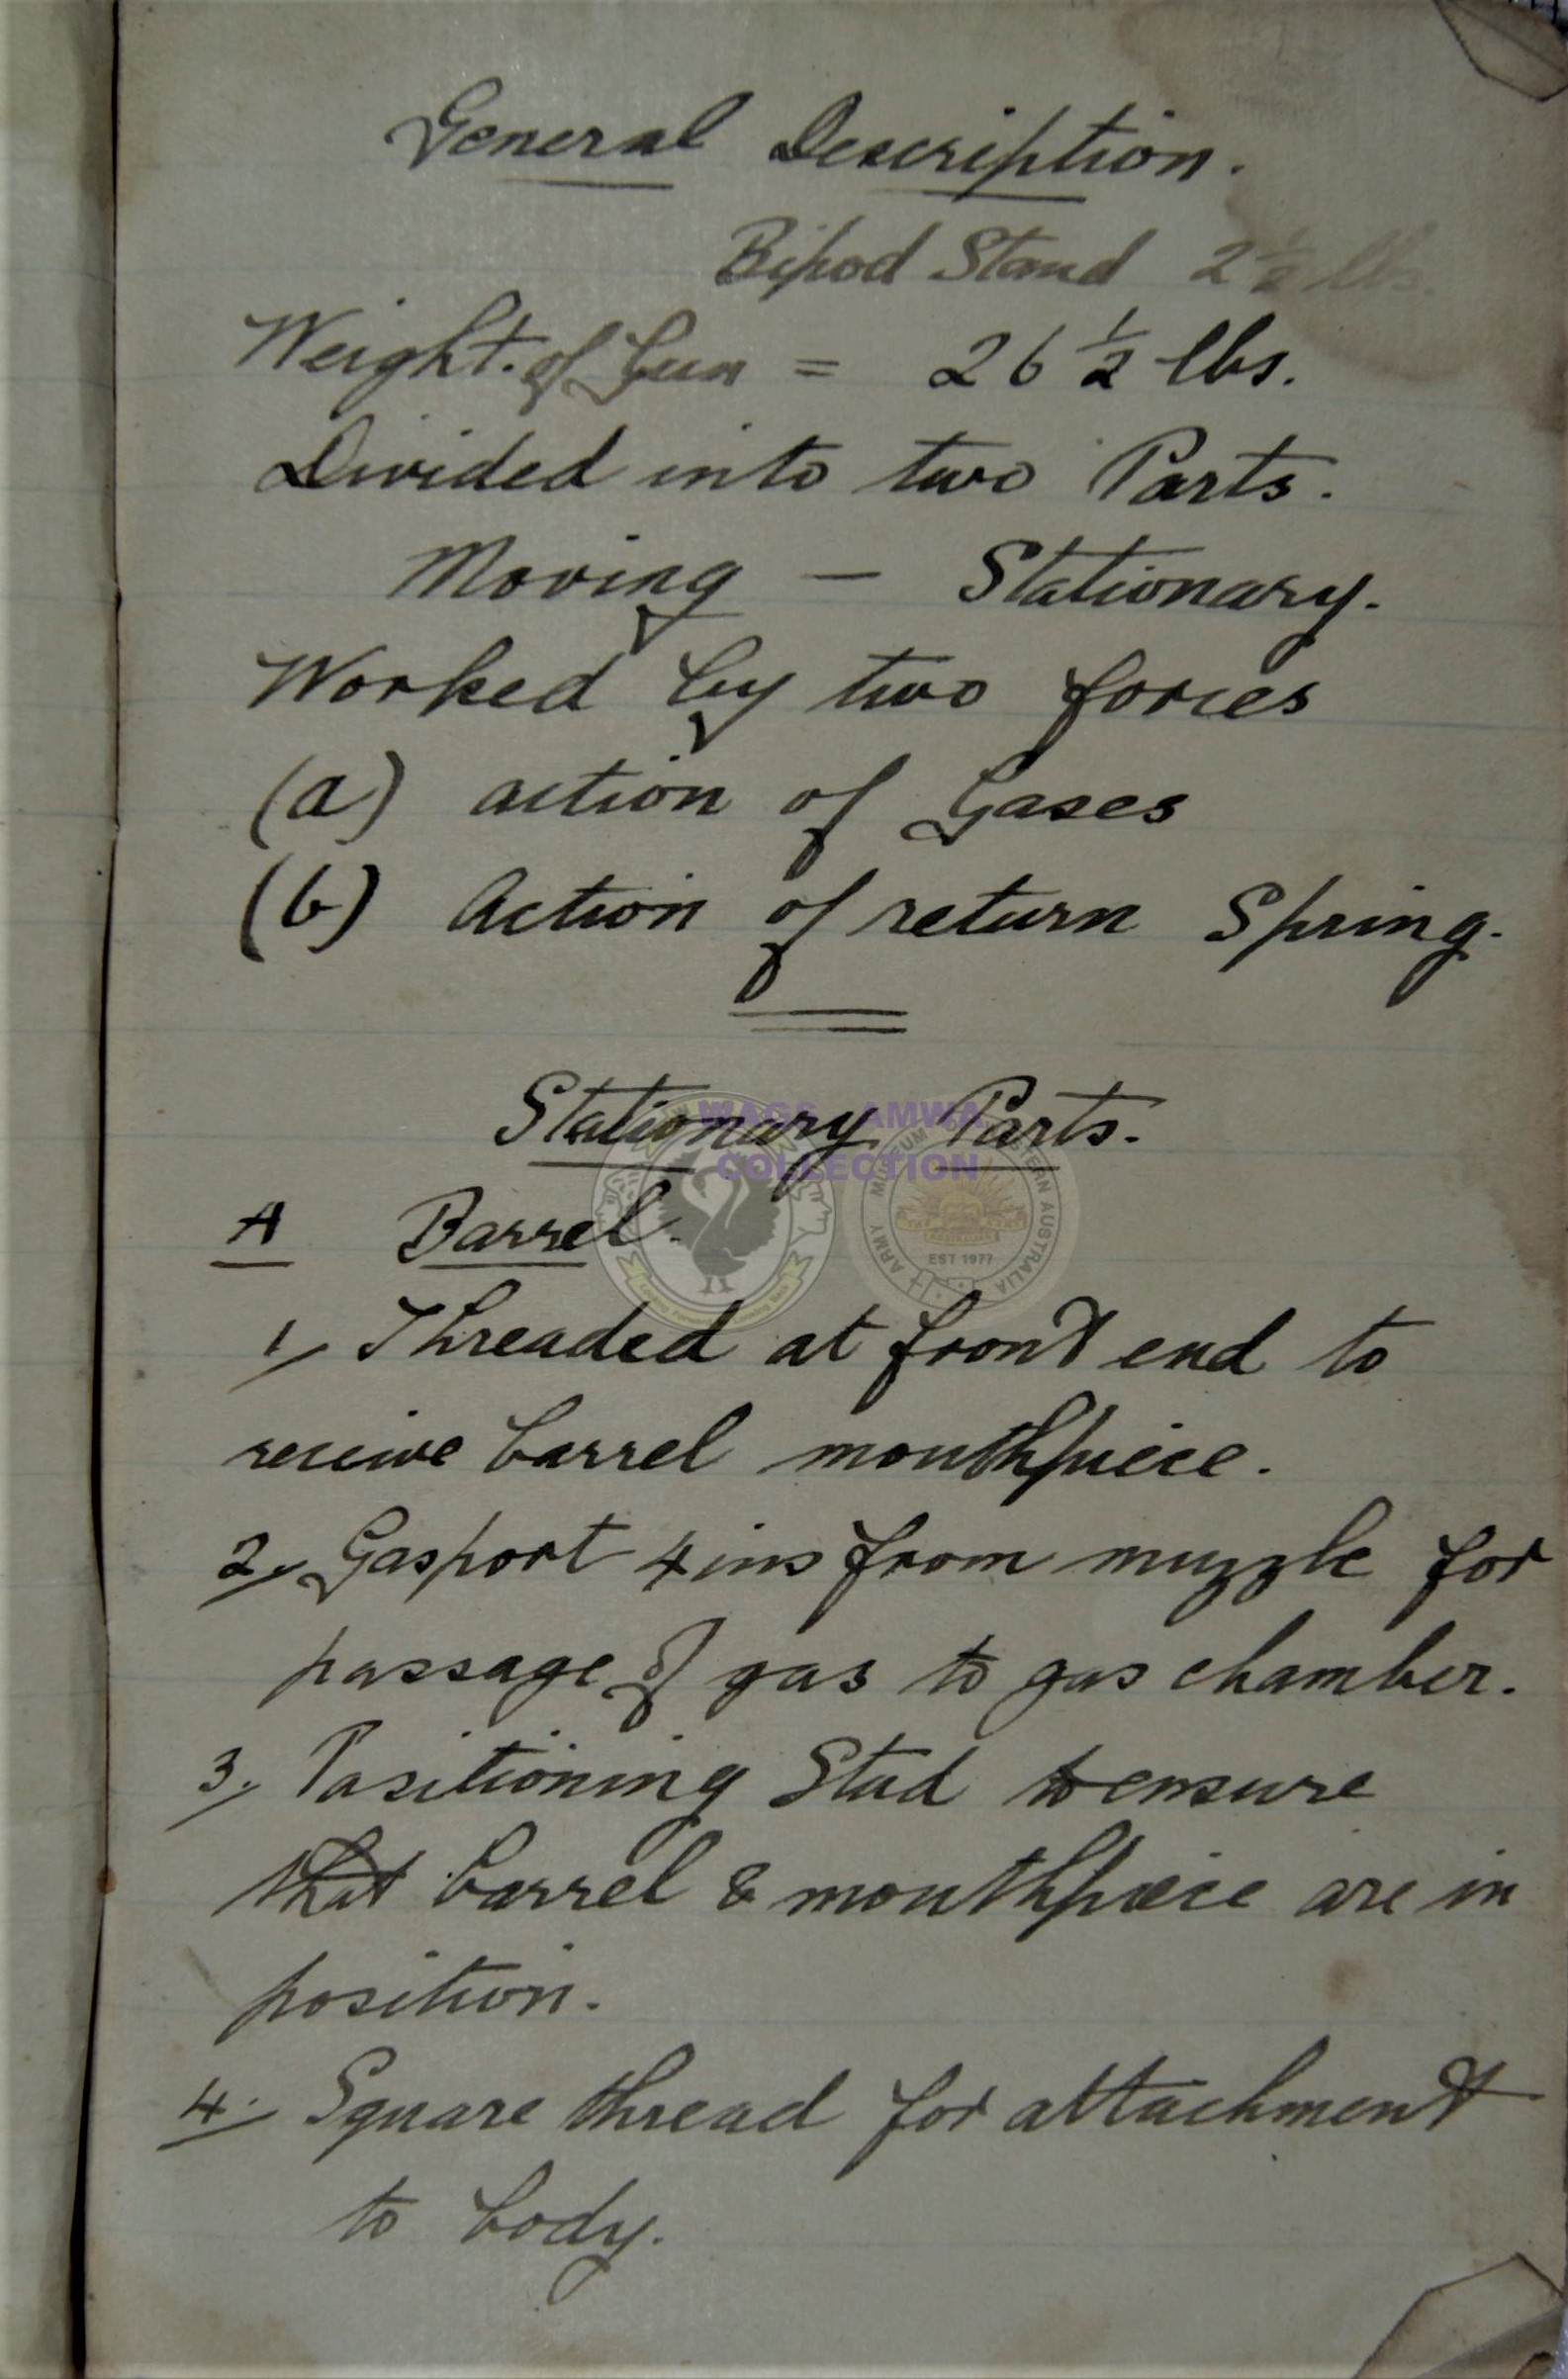 General Description.
Bipod Stand 2½ lbs.
Weight. of Gun = 26 ½ lbs.
Divided into two Parts.
Moving — Stationary.
Worked by two forces
(a) action of Gases
(b) Action of return Spring.
Stationary Parts.
WAGS AMWA
COLLECTION
A Barrel.
ARMY MUSEUM OF WESTERN AUSTRALIA
EST 1977
1/ Threaded at front end to
receive barrel mouthpiece.
2/. Gasport 4 ins from muzzle for
passage of gas to gas chamber.
3/. Positioning Stud to ensure
that barrel & mouthpiece are in
position.
4/. Square thread for attachment
to body.